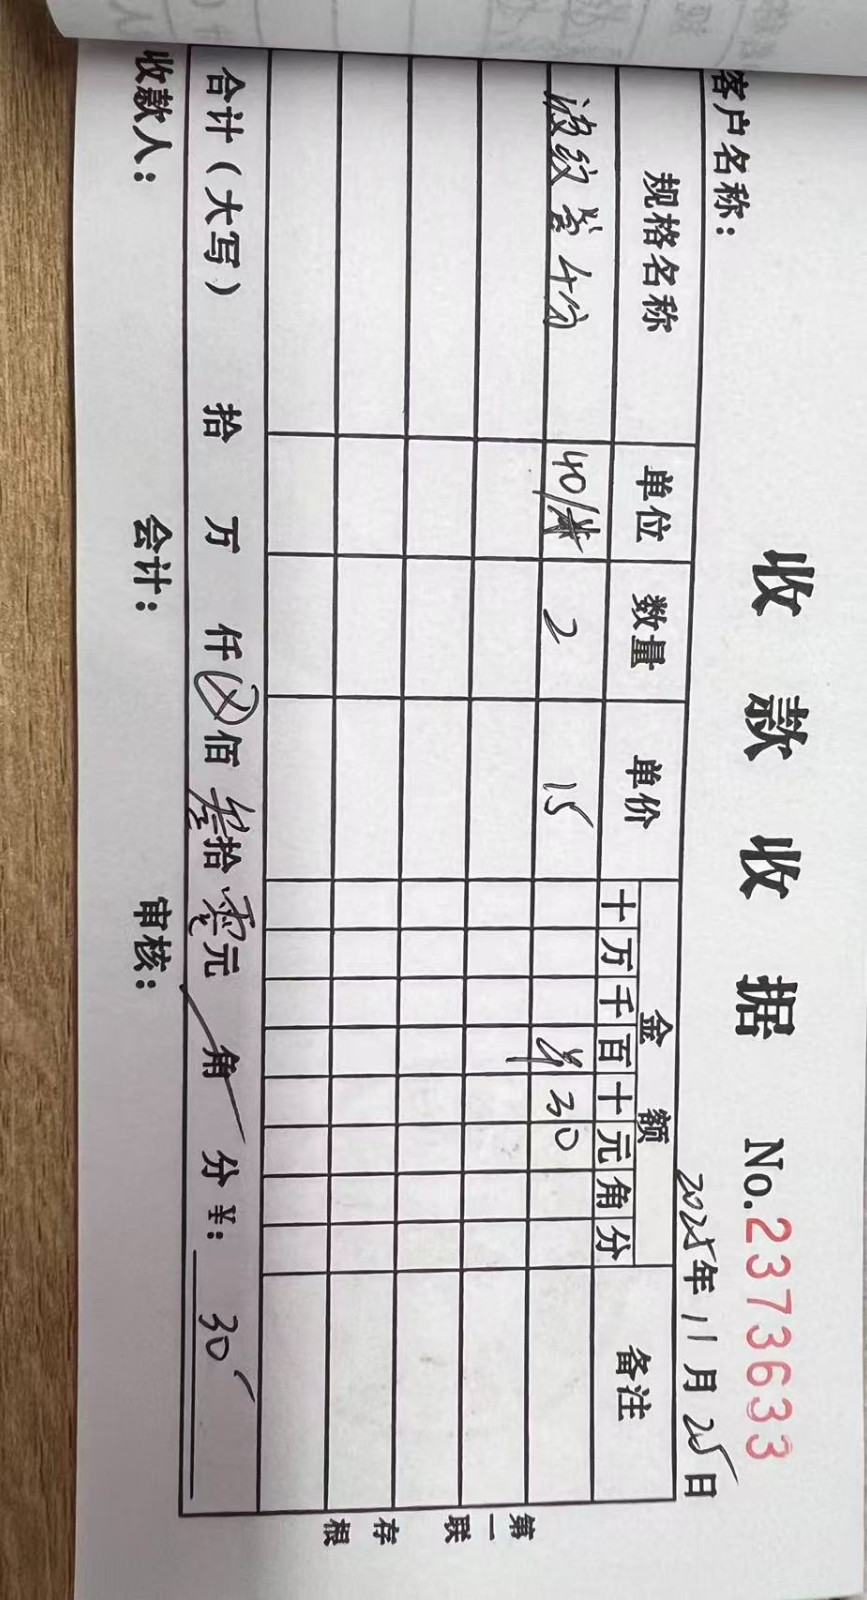 收款收据 No.2373633
客户名称： 2025年11月25日
规格名称 单位 数量 单价 金额 备注
十万千百十元角分
波纹管4分 40/ 2 15 ¥30
合计（大写） 拾 万 仟 佰叁拾零元 角 分 ¥：30
收款人： 会计： 审核：
第一联 存根